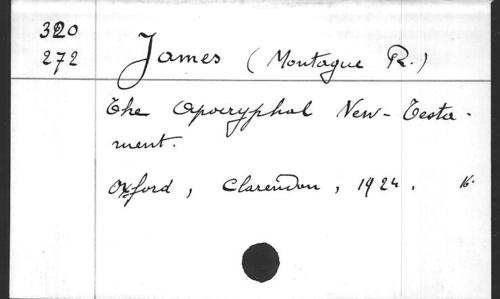 320
272
James (Montague R.)
The Apocryphal New-Testa-
ment.
Oxford, Clarendon, 1924.